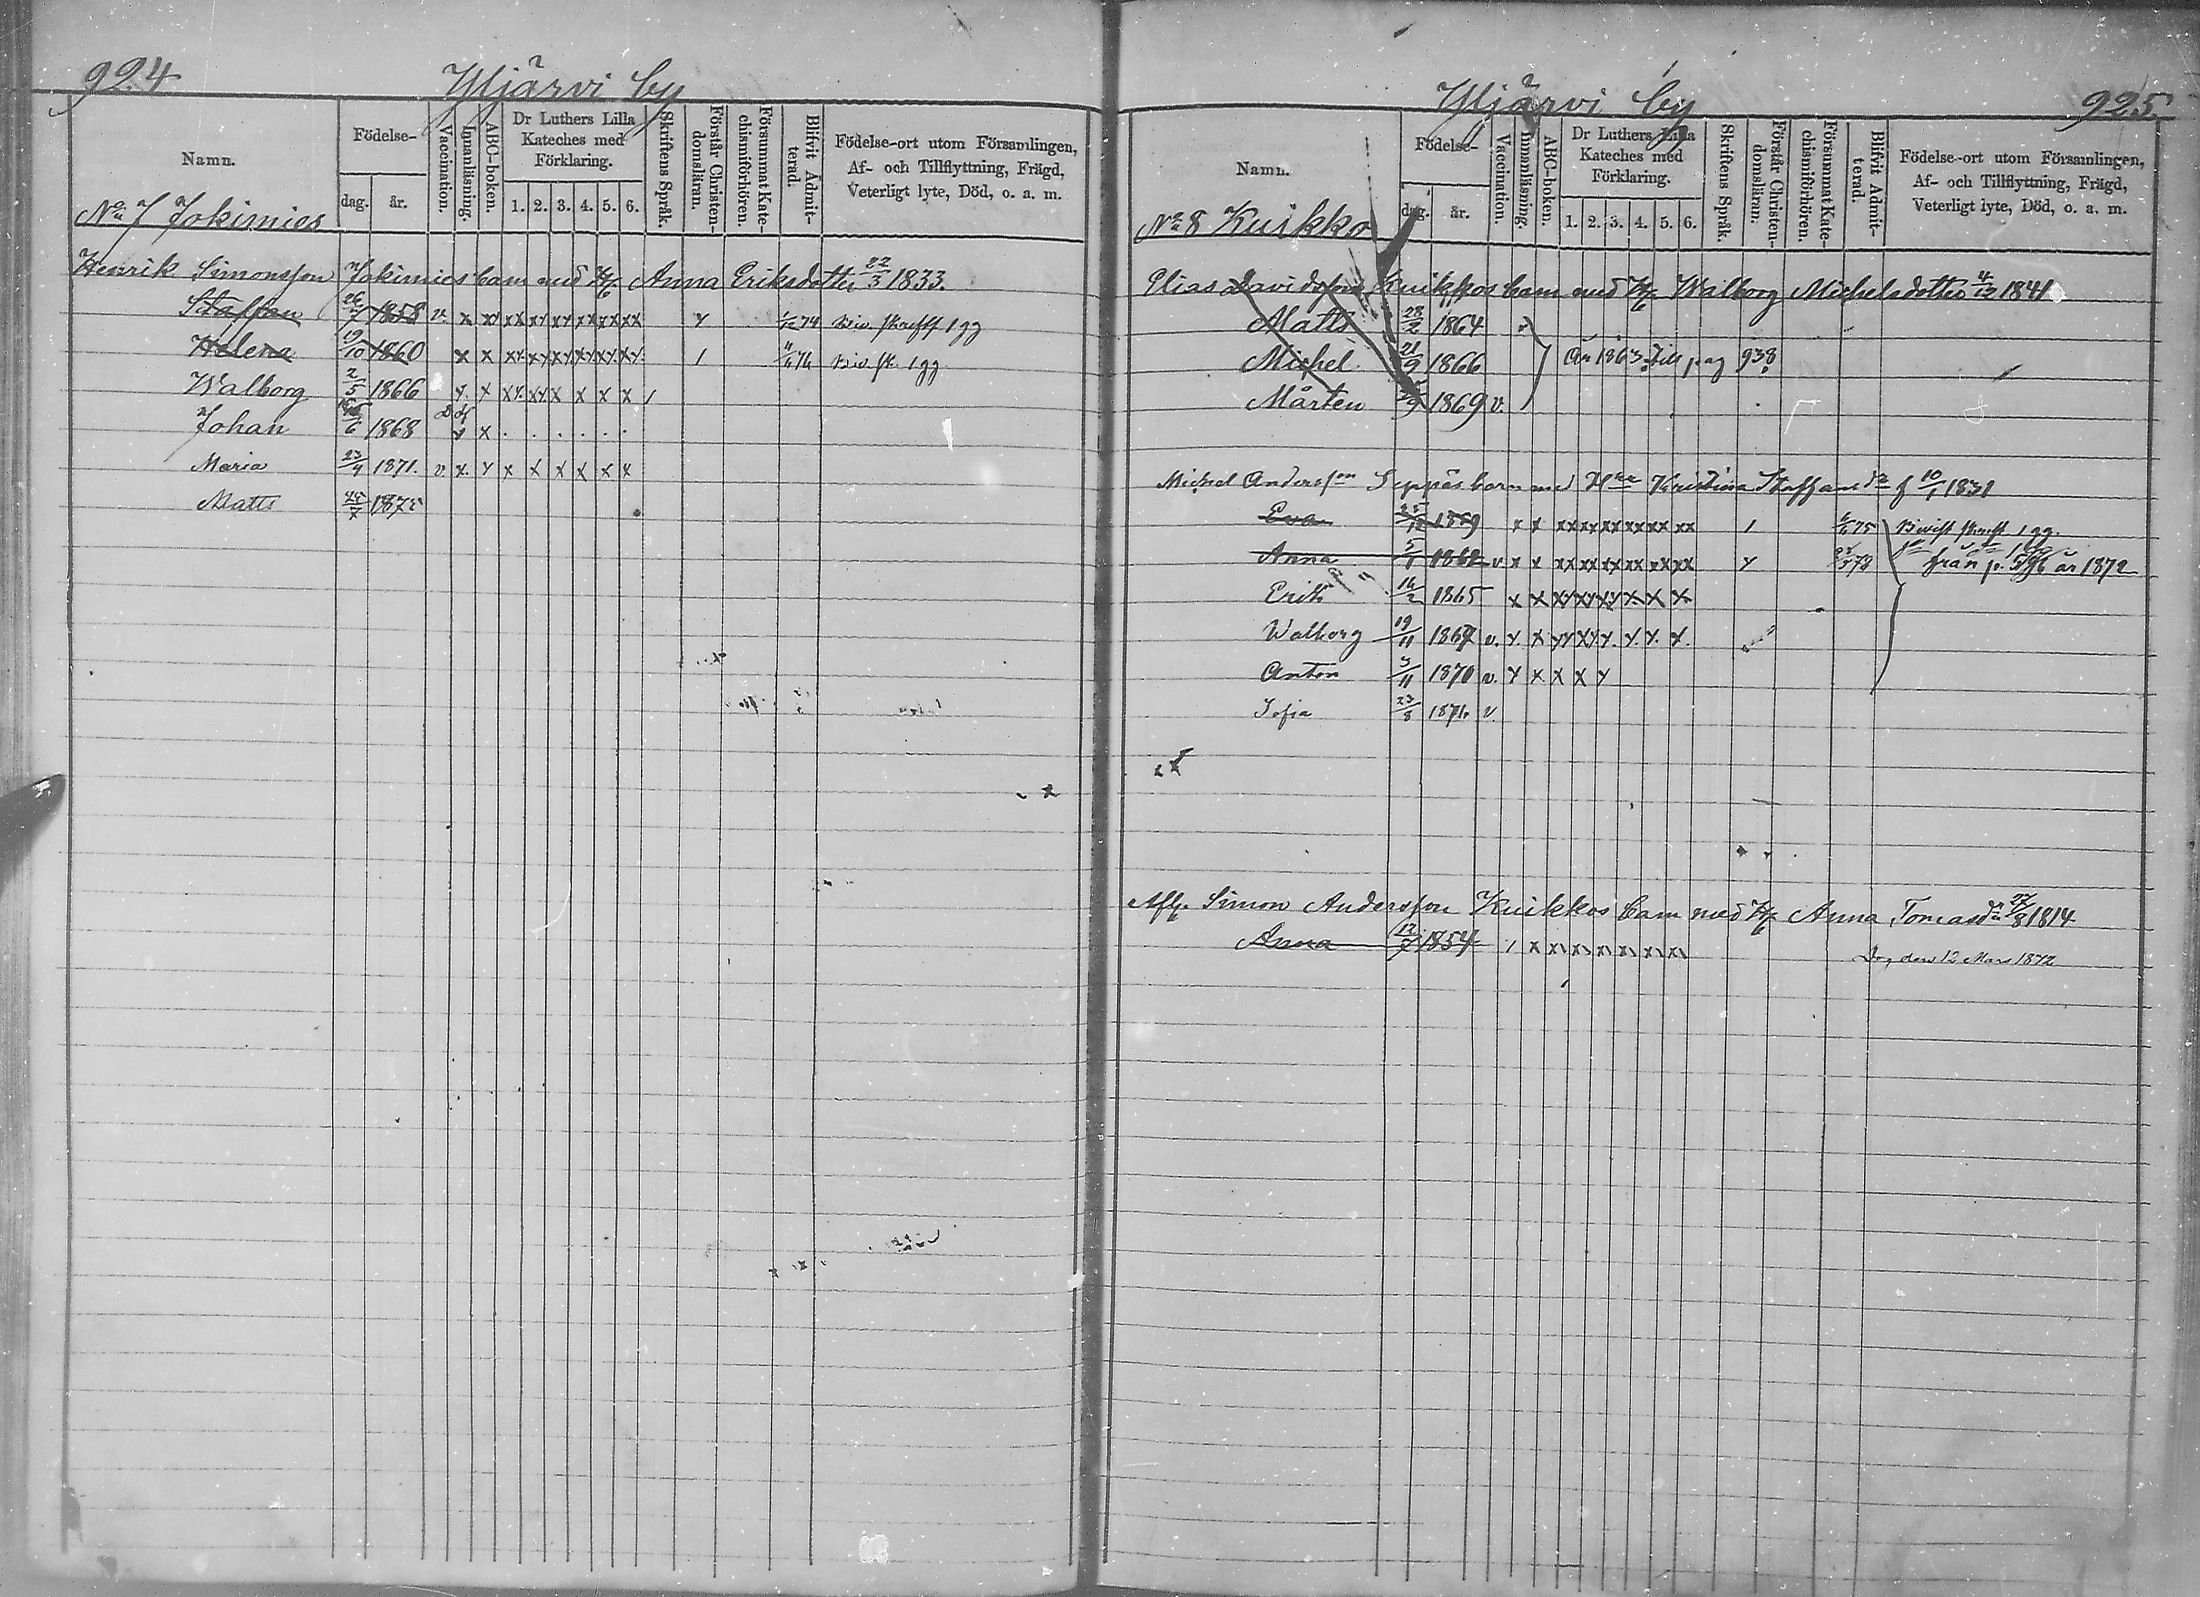 924
Yljärvi by
Namn.
Födelse-
dag.
år.
Vaccination.
Innanläsning.
ABC-boken.
Dr Luthers Lilla
Kateches med
Förklaring.
1. 2. 3. 4. 5. 6.
Skriftens Språk.
Förstår Christen-
domsläran.
Försummat Kate-
chismiförhören.
Blifvit Admit-
terad.
Födelse-ort utom Församlingen,
Af- och Tillflyttning, Frägd,
Veterligt lyte, Död, o. a. m.
No 7 Jokimies
Henrik Simonsson Jokimies barn med H Anna Eriksdotter 22/3 1833.
Staffan 26/7 1858 v. x x xx xx xx xx xx xx 1/12 74 1 gg
Helena 19/10 1860 x x xx xx xx xx xx xx 1 1 gg
Walborg 2/5 1866 x x xx xx x x x x /
Johan 1868 v x . . . . . .
Maria 23/4 1871. v. x x x x x x x x
Matts 1875
925.
Yljärvi by
Namn.
Födelse-
dag.
år.
Vaccination.
Innanläsning.
ABC-boken.
Dr Luthers Lilla
Kateches med
Förklaring.
1. 2. 3. 4. 5. 6.
Skriftens Språk.
Förstår Christen-
domsläran.
Försummat Kate-
chismiförhören.
Blifvit Admit-
terad.
Födelse-ort utom Församlingen,
Af- och Tillflyttning, Frägd,
Veterligt lyte, Död, o. a. m.
No 8 Kuikko
Elias Davidsson Kuikkos barn med H Walborg Michelsdotter 4/12 1841
Matts 28/2 1864 v
Michel 21/9 1866 År 1863 till pag 938
Mårten 1869 v.
Michel Andersson Seppäs barn med Kristina Staffansdr f 10/1 1831
Eva 25/12 1859 x x xx xx xx xx xx xx 1 6/6 75 1 gg.
Anna 5/1 1862 v x x xx xx xx xx xx xx från p. 596 år 1872
Erik 14/2 1865 x x xx xx xx x x x
Walborg 19/11 1867 v. x. x xx xx x. x. x. x.
Anton 3/11 1870 v. x x x x x
Sofia 23/8 1876 v
Afl. Simon Andersson Kuikkos barn med H Anna Tomasdr 27/8 1814
Anna 12/7 1854 1 x x x x x x x
Dog den 12 Mars 1872